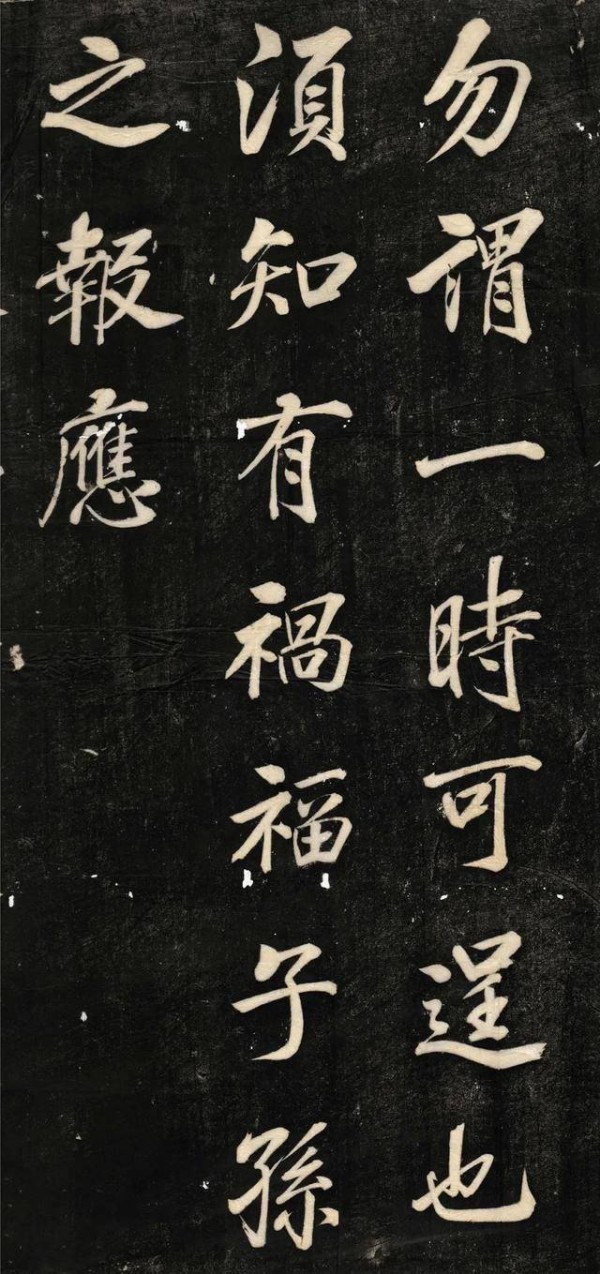 勿謂一時可逞也
須知有禍福子孫
之報應